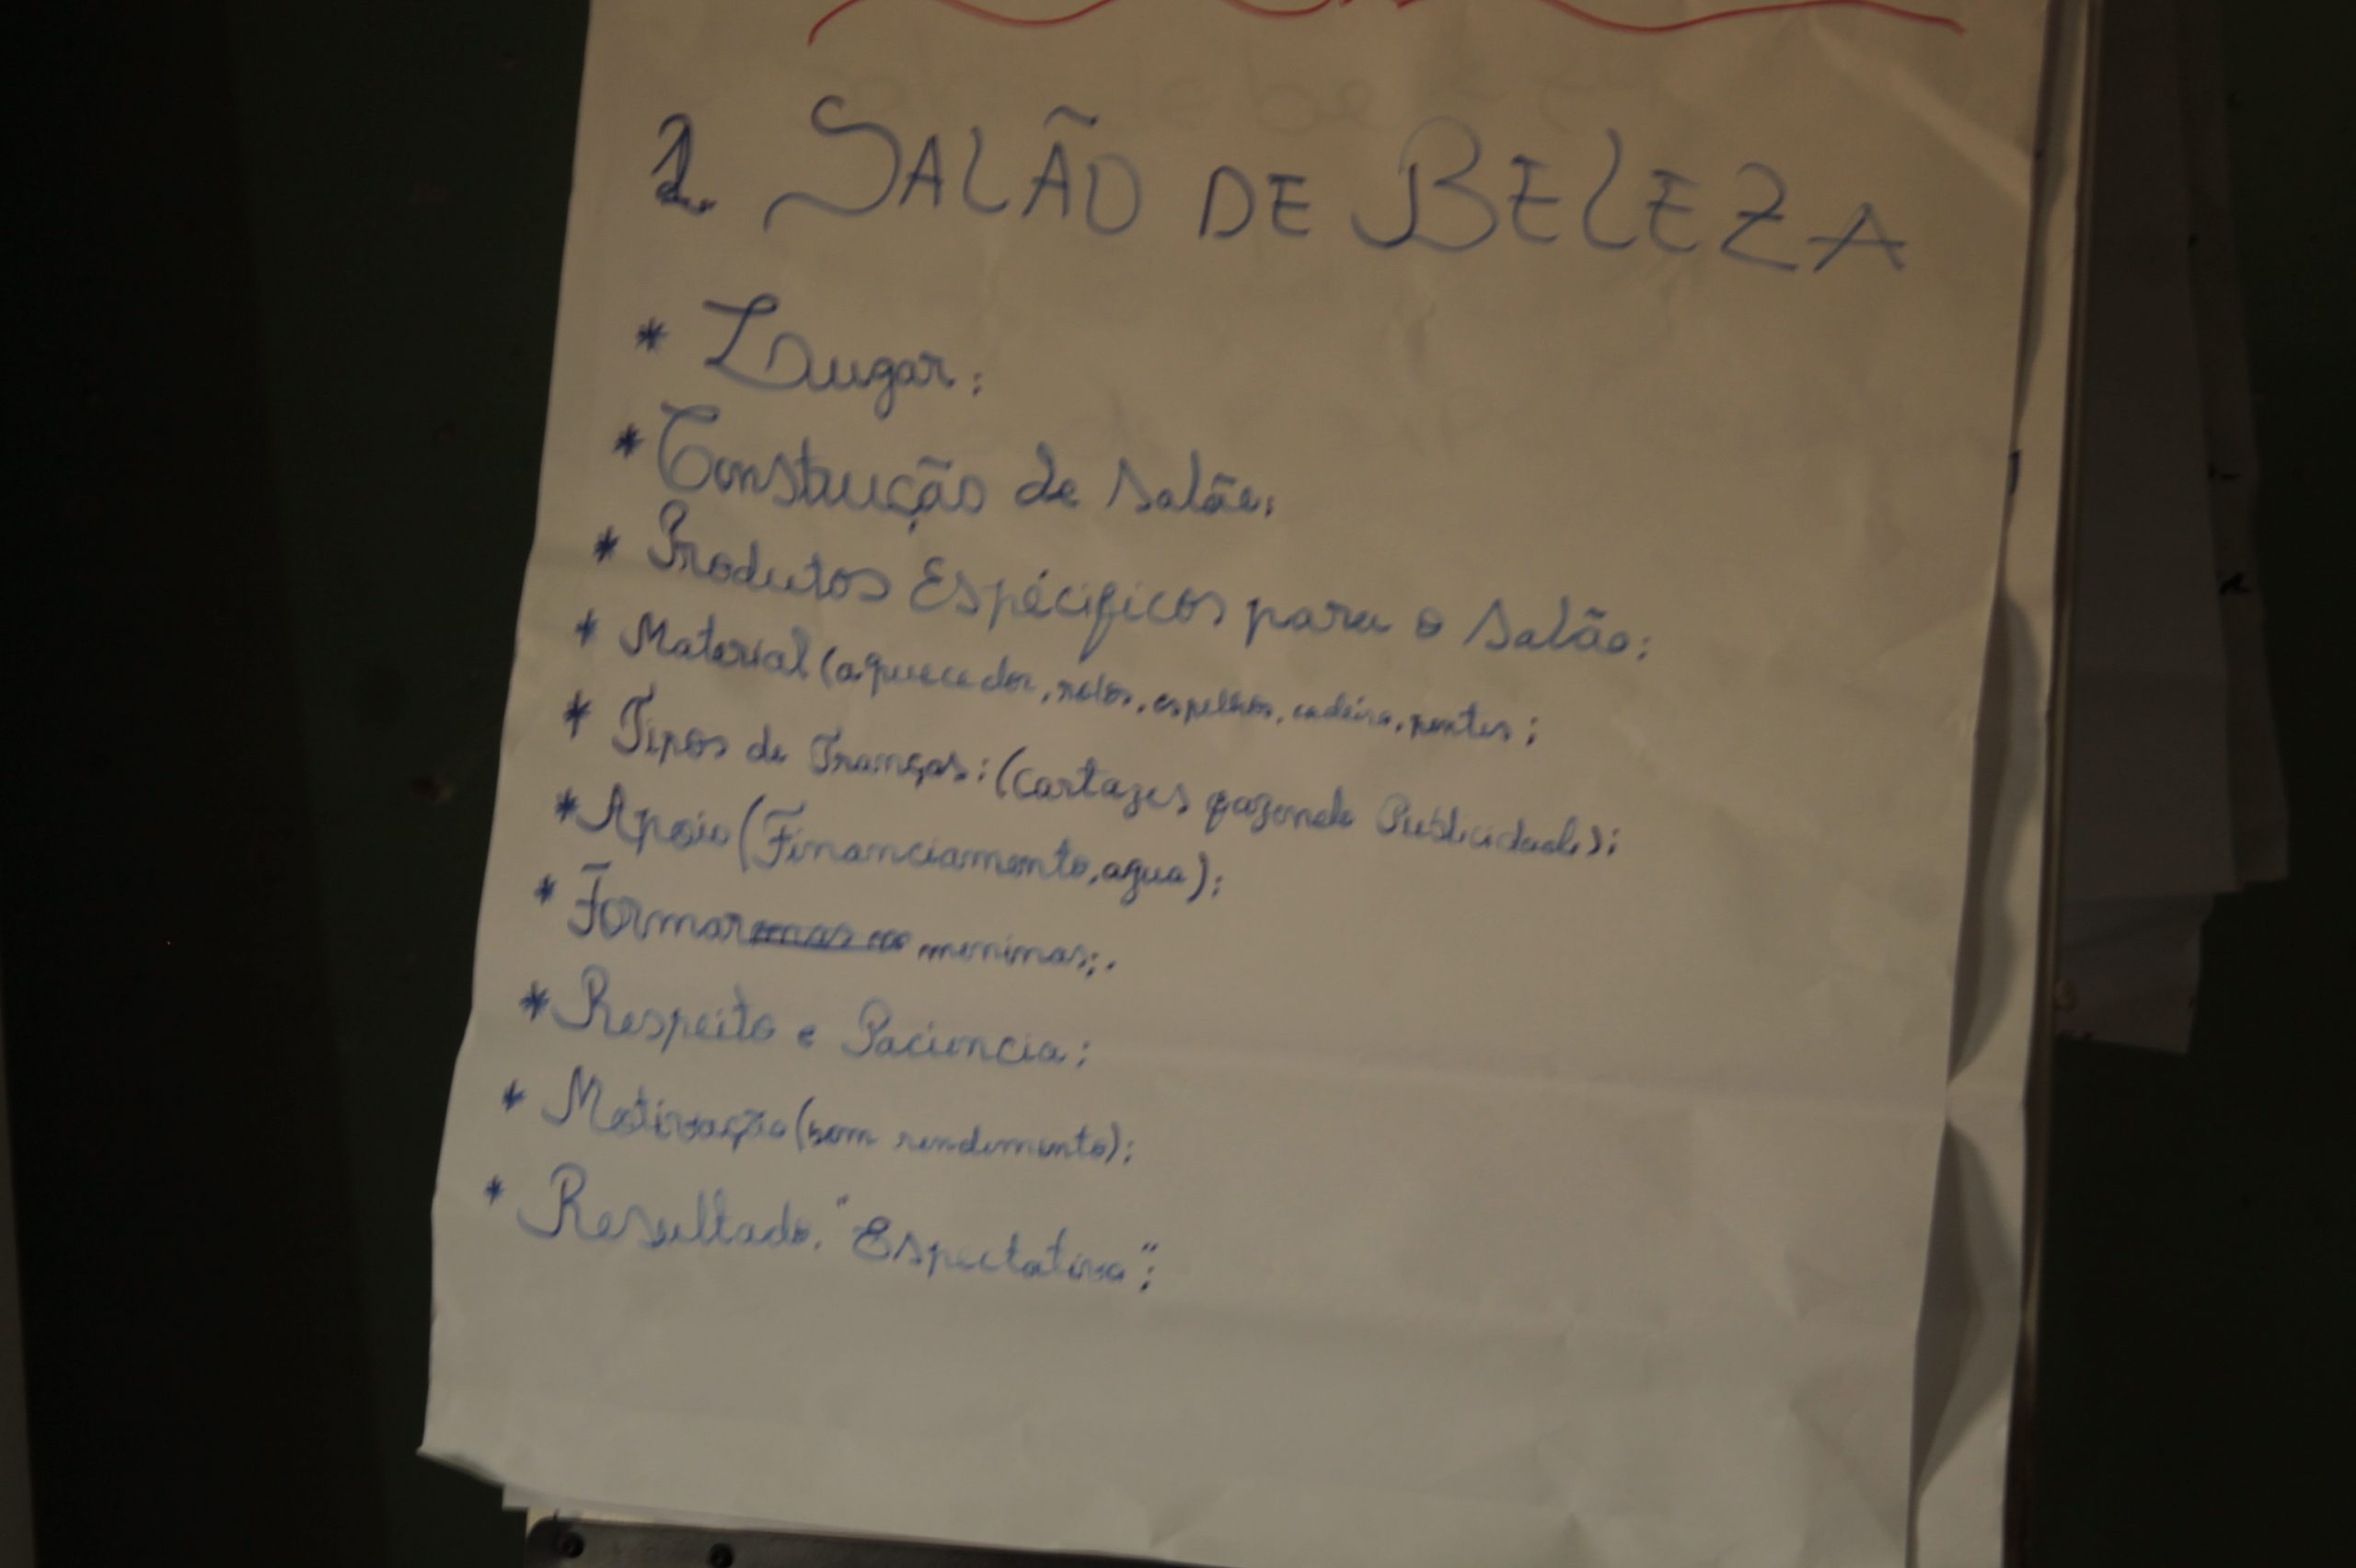 1. SALÃO DE BELEZA
* Lugar;
* Construção de salão;
* Produtos Espécificos para o salão;
* Material (aquecedor, rolos, espelhos, cadeira, pentes;
* Tipos de Tranças: (cartazes fazendo Publicidade);
* Apoio (Financiamento, agua);
* Formar meninas;.
* Respeito e Paciencia;
* Motivação (bom rendimento);
* Resultado. "Espectativa";